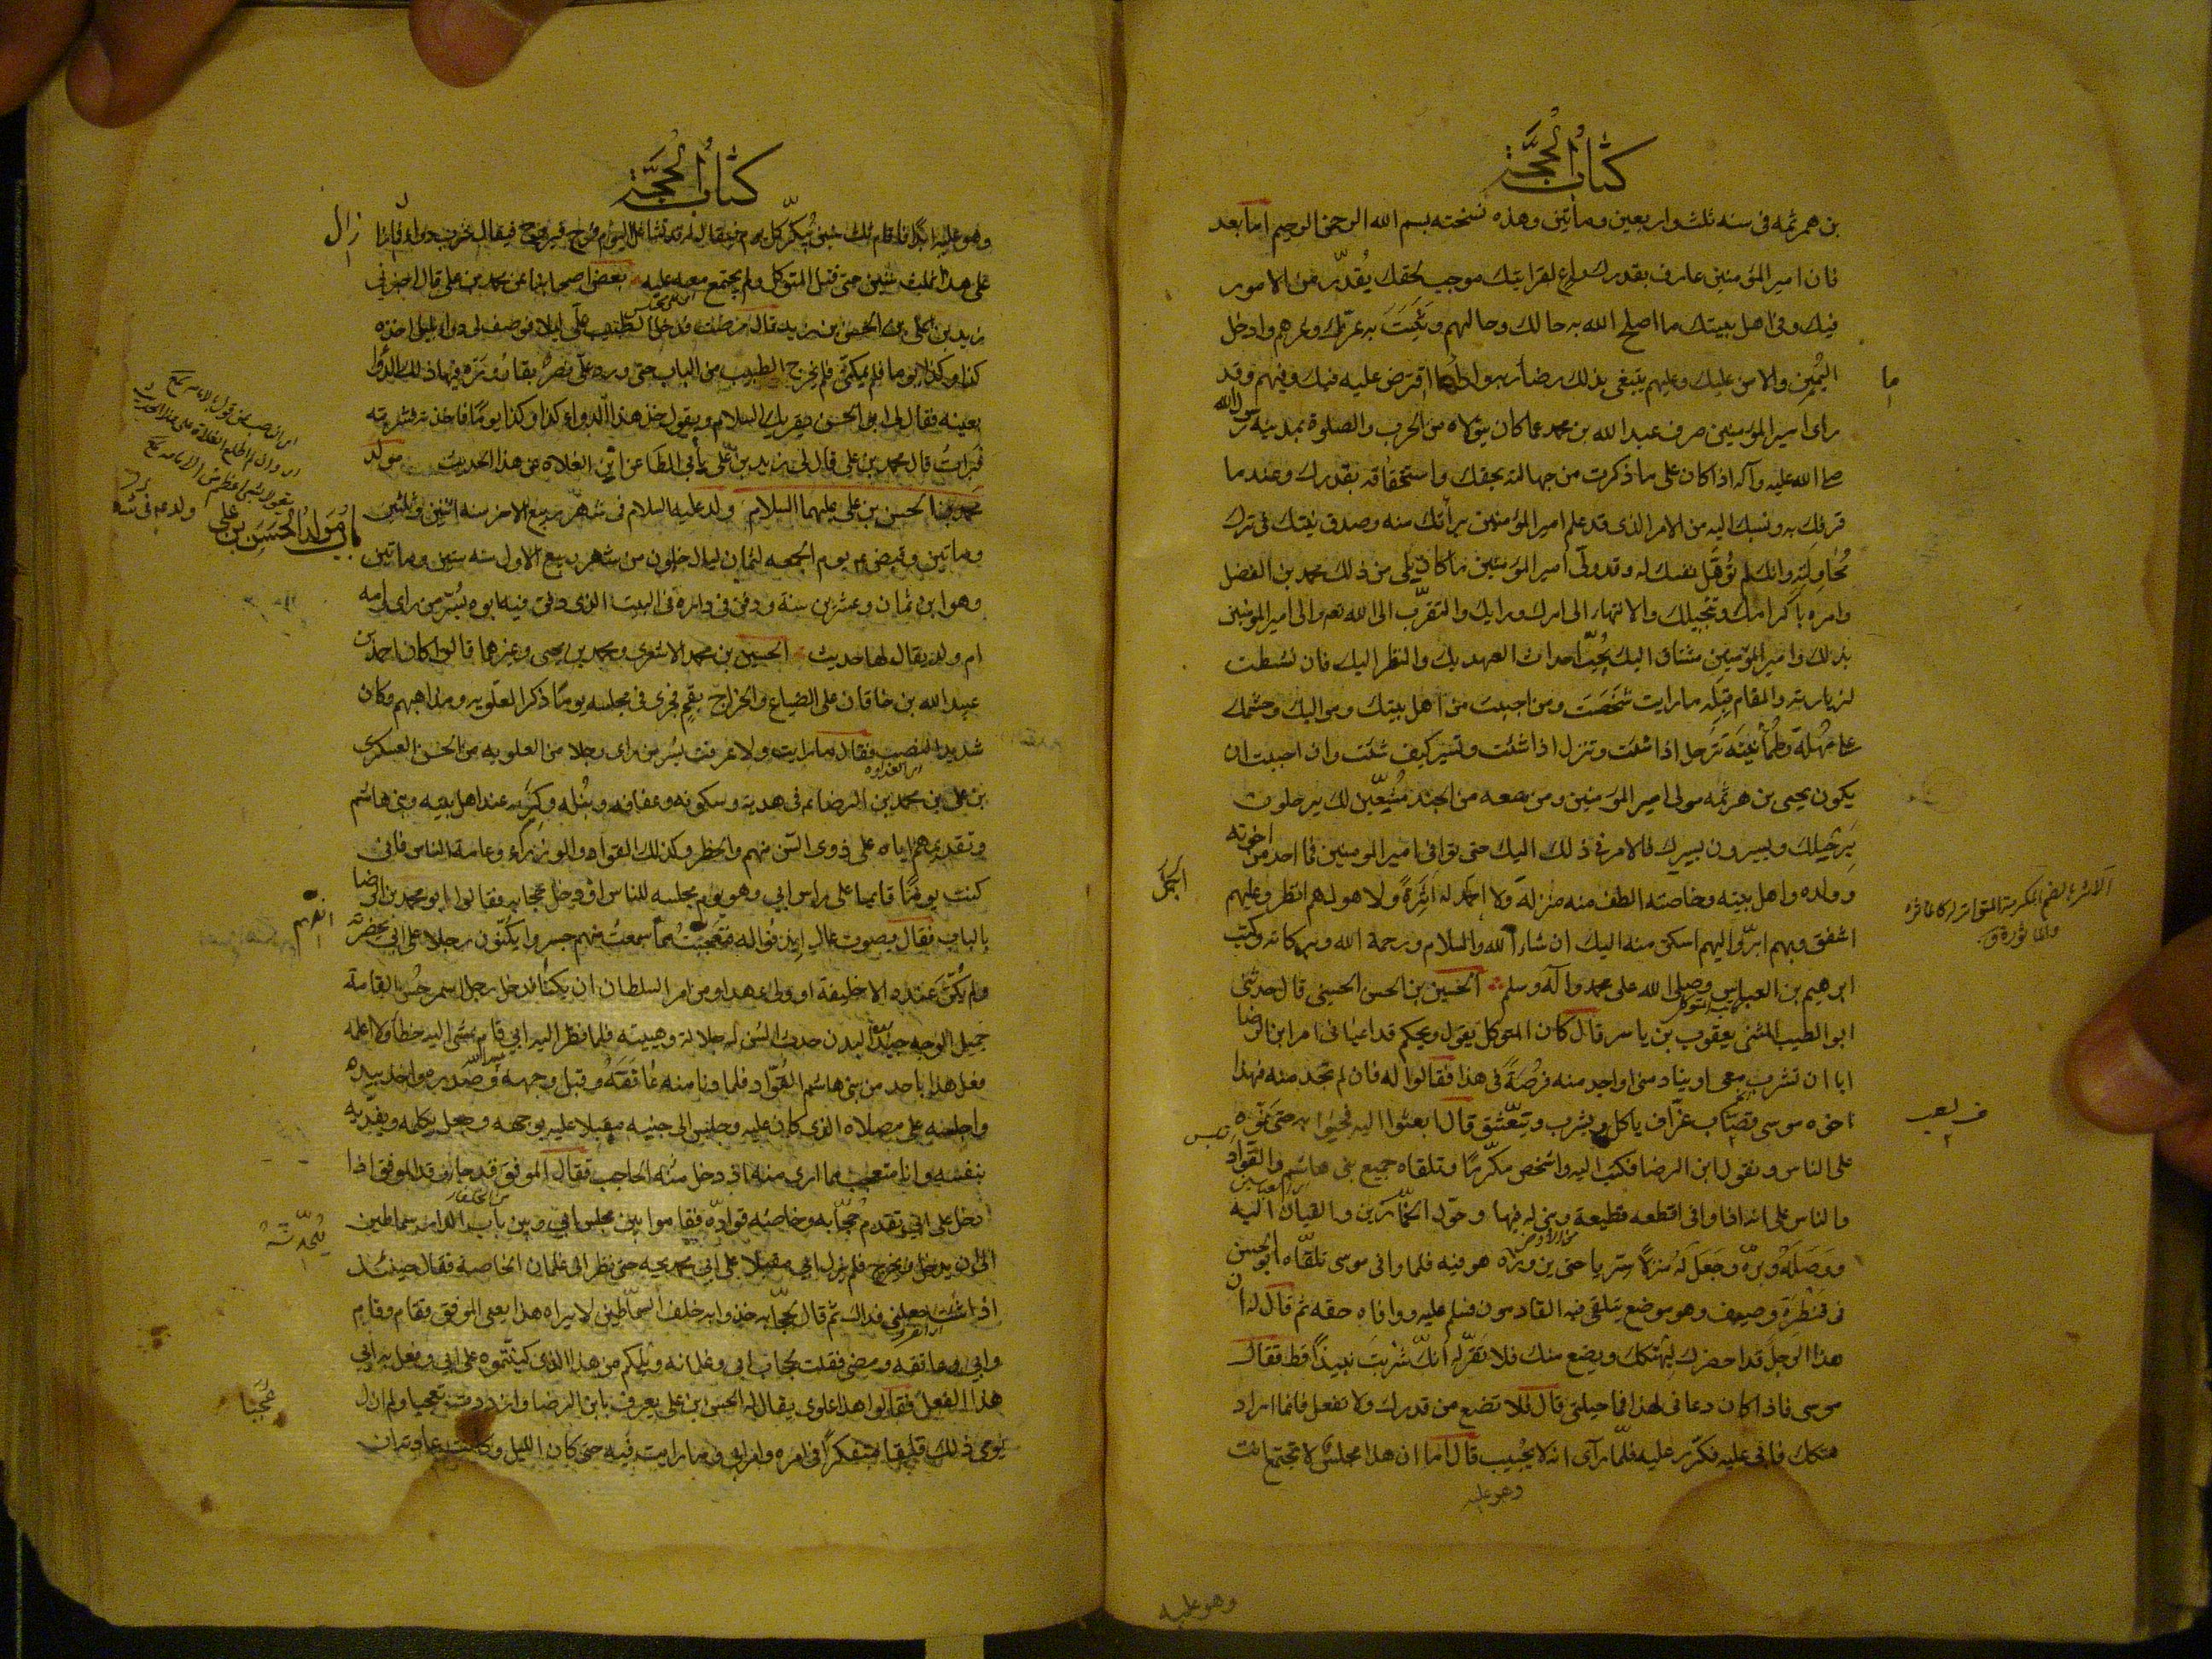 كتاب الحجة
بن هرثمه فى سنه ثلث واربعين ومأتين وهذه نسخته بسم الله الرحمن الرحيم اما بعد
فان امير المؤمنين عارف بقدرك راع لقرابتك موجب لحقك يقدّر من الامور
فيك وفى اهل بيتك ما اصلح الله به حالك وحالهم ويثبت به عزّك وعزهم وادخل
اليمن والامن عليك وعليهم يبتغى بذلك رضاء ربه واداء ما افترض عليه فيك وفيهم وقد
راى امير المؤمنين صرف عبد الله بن محمد عما كان يتولاه من الحرب والصلوة بمدينة رسول الله
صلى الله عليه وآله اذا كان على ما ذكرت من جهالته بحقك واستخفافه بقدرك وعند ما
قرفك به ونسبك اليه من الامر الذى قد علم امير المؤمنين برأتك منه وصدق نيتك فى ترك
محاولته وانك لم تؤهل نفسك له وقد ولّى امير المؤمنين ما كان يلى من ذلك محمد بن الفضل
وامره باكرامك وتبجيلك والانتهاء الى امرك ورايك والتقرّب الى الله تعم والى امير المؤمنين
بذلك وامير المؤمنين مشتاق اليك يحبّ احداث العهد بك والنظر اليك فان نشطت
لزيارته والمقام قبله ما رايت شخصت ومن احببت من اهل بيتك ومواليك وحشمك
على مهلة وطمأنينة ترحل اذا شئت وتنزل اذا شئت وتسير كيف شئت وان احببت ان
يكون يحيى بن هرثمه مولى امير المؤمنين ومن معه من الجند مشيّعين لك يرحلون
برحيلك ويسيرون بسيرك فالامر فى ذلك اليك حتى توافى امير المومنين فما احد من اخوته
وولده واهل بيته وخاصته الطف منه منزلة ولا احمد له اثرة ولا هو لهم انظر وعليهم
اشفق وبهم ابرّ واليهم اسكن منه اليك ان شاء الله والسلام ورحمة الله وبركاته وكتب
ابرهيم بن العباس وصلى الله على محمد وآله وسلم الحسين بن الحسن الحسينى قال حدثنى
ابو الطيب المثنى يعقوب بن ياسر قال كان المتوكل يقول ويحكم قد اعيانى امر ابن الرضا
ابا ان تشرب معى او ينادمنى او اجد منه فرصة فى هذا فقالوا له فان لم تجد منه فهذا
اخوه موسى قصّاف عزّاف ياكل ويشرب ويتعشق قال ابعثوا اليه فجيئوا به حتى نموّه
على الناس ونقول ابن الرضا فكتب اليه واشخص مكرّما وتلقاه جميع بنى هاشم والقواد
والناس على انه اذا وافى اقطعه قطيعة وبنى له فيها وحوّل الخمّارين والقيان اليه
ووصله وبرّه وجعل له منزلا سريا حتى يزوره هو فيه فلما وافى موسى تلقّاه ابو الحسن
فى قنطرة وصيف وهو موضع يتلقى فيه القادمون فسلم عليه ووافاه حقه ثم قال له ان
هذا الرجل قد احضرك ليهتكك ويضع منك فلا تقرّ له أنّك شربت نبيذا قط فقال
موسى فاذا كان دعانى لهذا فما حيلتى قال فلا تضع من قدرك ولا تفعل فانما اراد
هتكك فابى عليه فكرّر عليه فلمّا رأى انه لا يجيب قال اما ان هذا مجلس لا تجتمع انت
وهو عليه
وهو عليه
كتاب الحجة
وهو عليه ابدا فاقام ثلث سنين يبكّر كل يوم فيقال له قد تشاغل اليوم فرح فيروح فيقال شرب دواء
على هذا ثلث سنين حتى قتل المتوكل ولم يجتمع معه عليه بعض اصحابنا عن محمد بن على قال اخبرنى
زيد بن على بن الحسن بن زيد قال مرضت فدخل الطبيب علىّ ليلا فوصف لى دواء بليل اخذه
كذا وكذا يوما فلم يمكنّى فلم يخرج الطبيب من الباب حتى ورد علىّ نصر بقارورة فيها ذلك الدواء
بعينه فقال لى ابو الحسن يقريك السلام ويقول خذ هذا الدواء كذا وكذا يوما فاخذته فشربته
فبرأت قال محمد بن على قال لى زيد بن على يأبى الطاعن اين الغلاة عن هذا الحديث مولد
الحسن بن على عليهما السلام ولد عليه السلام فى شهر ربيع الاخر سنه اثنين وثلثين
وماتين وقبض ع يوم الجمعه لثمان ليال خلون من شهر ربيع الاول سنه ستين وماتين
وهو ابن ثمان وعشرين سنة ودفن فى داره فى البيت الذى دفن فيه ابوه بسرّ من راى امه
ام ولد يقال لها حديث الحسين بن محمد الاشعرى ومحمد بن يحيى وغيرهما قالوا كان احمد بن
عبيد الله بن خاقان على الضياع والخراج بقم فجرى فى مجلسه يوما ذكر العلويه ومذاهبهم وكان
شديد النصب فقال ما رايت ولا عرفت بسر من راى رجلا من العلويه مثل الحسن العسكرى
بن على بن محمد بن الرضا ع فى هديه وسكونه وعفافه ونبله وكبره عند اهل بيته وبنى هاشم
وتقديمهم اياه على ذوى السن منهم والخطر وكذلك القواد والوزراء وعامة الناس فانى
كنت يوما قايما على راس ابى وهو يوم مجلسه للناس اذ دخل حجابه فقالوا ابو محمد بن الرضا
بالباب فقال بصوت عال ايذنوا له فتعجبت مما سمعت منهم جسروا يكنّون رجلا على ابى بحضرته
ولم يكنّ عنده الا خليفة او ولى عهد او من امر السلطان ان يكنا فدخل رجل اسمر حسن القامة
جميل الوجه جيد البدن حدث السن له جلالة وهيبته فلما نظر اليه ابى قام يمشى اليه خطا ولا اعلمه
فعل هذا باحد من بنى هاشم والقوّاد فلما دنا منه عانقه وقبل وجهه وصدره واخذ بيده
واجلسه على مصلاه الذى كان عليه وجلس الى جنبه مقبلا عليه بوجهه وجعل يكلمه ويفدّيه
بنفسه وانا متعجب مما ارى منه اذ دخل عليه الحاجب فقال الموفق قد جاء وقد الموفق اذا
دخل على ابى تقدم حجّابه وخاصة قوادّه فقاموا بين مجلس ابى وبين باب الدار سماطين
الى ان يدخل ويخرج فلم يزل ابى مقبلا على ابى محمد يحدثه حتى نظر الى غلمان الخاصة فقال حينئذ
اذا شئت جعلنى فداك ثم قال لحجّابه خذوا به خلف السماطين لا يراه هذا يعنى الموفق فقام وقام
وابى وعانقه ومضى فقلت لحجاب ابى وغلمانه ويلكم من هذا الذى كنيتموه على ابى وفعل به ابى
هذا الفعل فقالوا هذا علوى يقال له الحسن بن على يعرف بابن الرضا وازددت تعجبا ولم ازل
يومى ذلك قلقا متفكرا فى امره وامر ابى وما رايت فيه حتى كان الليل وكانت عادته ان
باب مولد الحسن بن على
زال